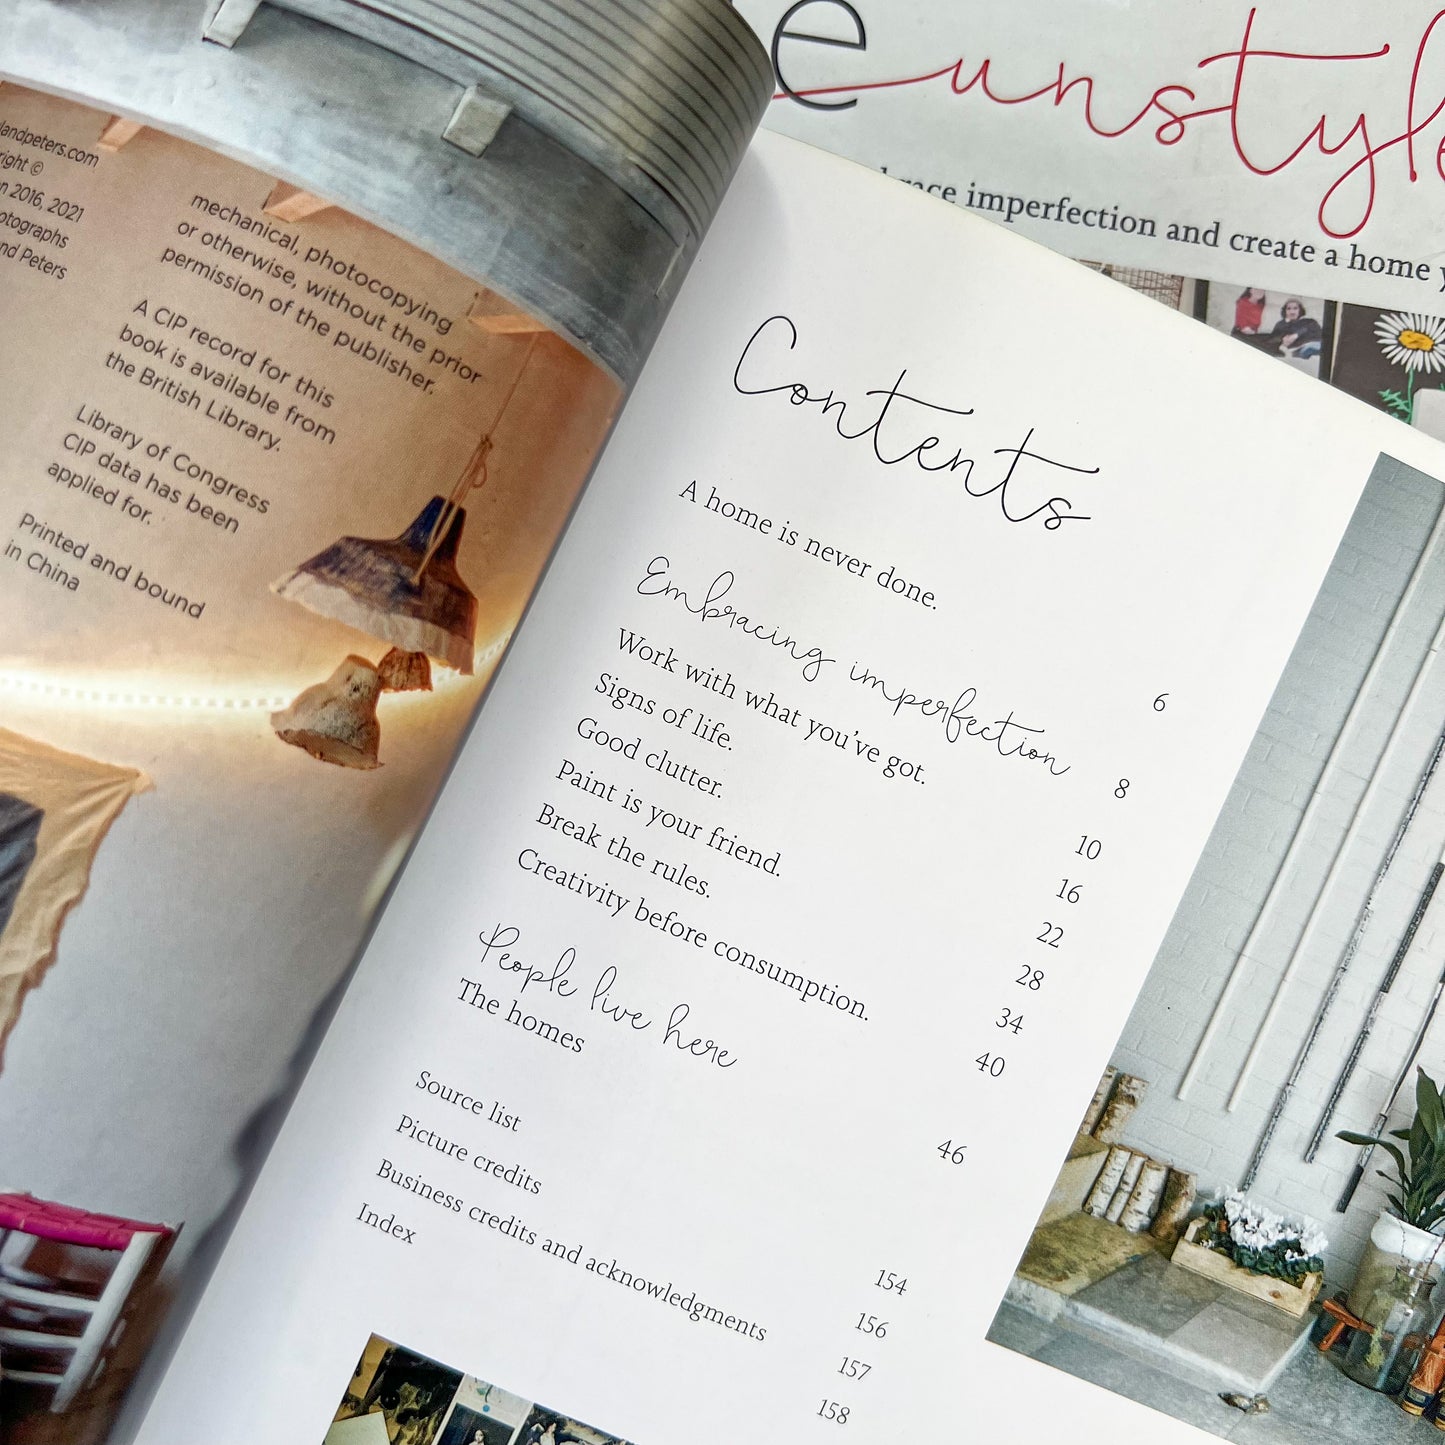 landpeters.com
right ©
n 2016, 2021
otographs
nd Peters
mechanical, photocopying
or otherwise, without the prior
permission of the publisher.
A CIP record for this
book is available from
the British Library.
Library of Congress
CIP data has been
applied for.
Printed and bound
in China
e unstyle
imperfection and create a home
Contents
A home is never done. 6
Embracing imperfection 8
Work with what you've got. 10
Signs of life. 16
Good clutter. 22
Paint is your friend. 28
Break the rules. 34
Creativity before consumption. 40
People live here
The homes 46
Source list 154
Picture credits 156
Business credits and acknowledgments 157
Index 158